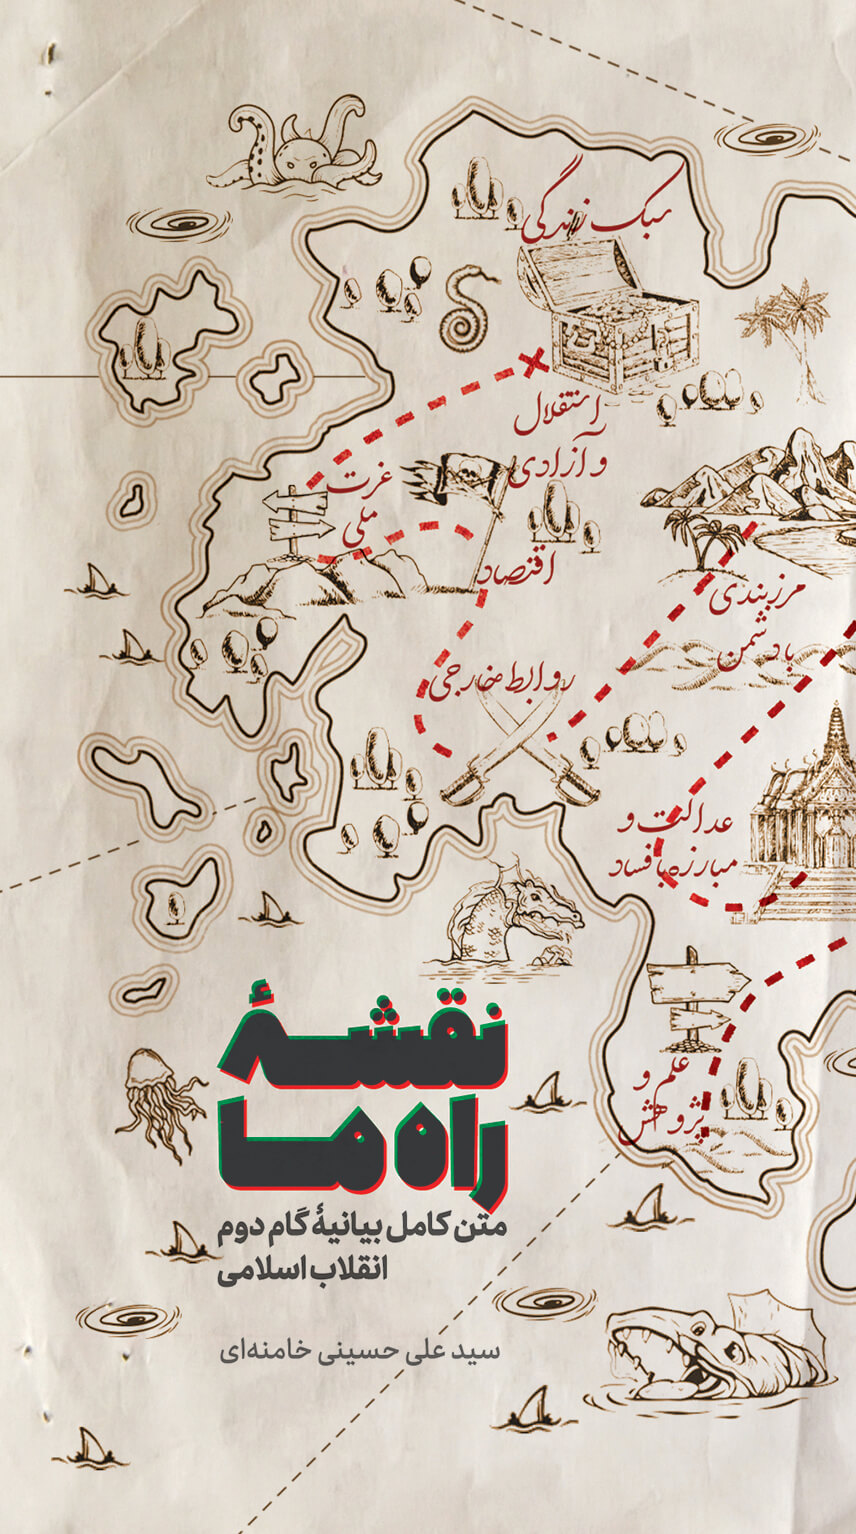 سبک زندگی
استقلال
و آزادی
عزت
ملی
اقتصاد
روابط خارجی
مرزبندی
با دشمن
عدالت و
مبارزه با فساد
علم و
پژوهش
نقشهٔ
راه ما
متن کامل بیانیهٔ گام دوم
انقلاب اسلامی
سید علی حسینی خامنه‌ای